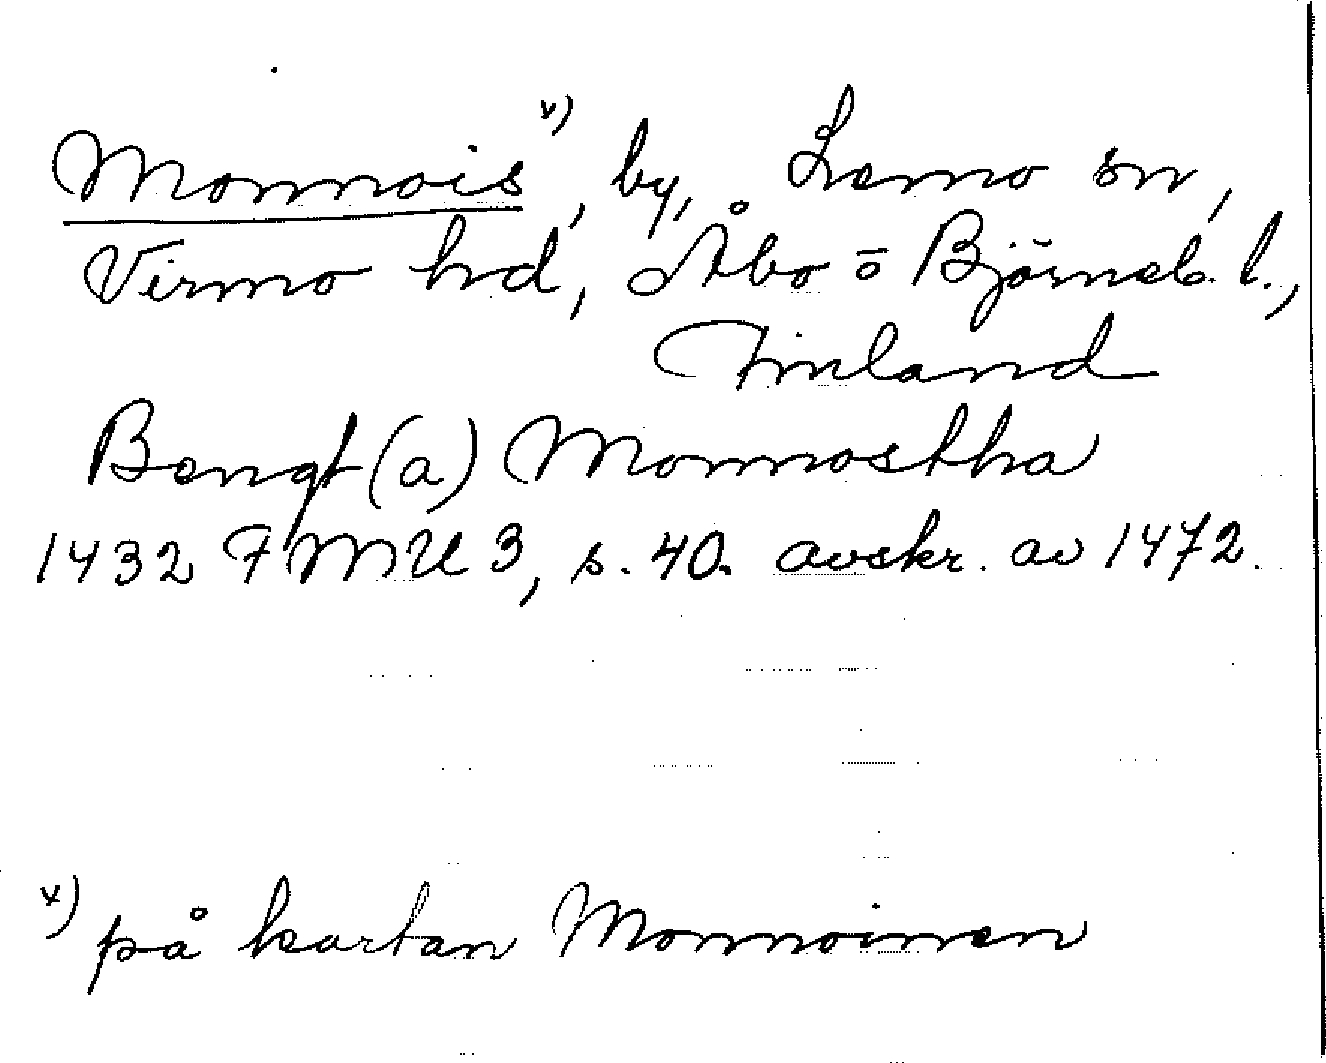 Monnois x), by, Lemo sn,
Virmo hd, Åbo o Björneb. l.,
Finland
Bengt (a) Monnostha
1432 FMU 3, s. 40. avskr. av 1472.
x) på kartan Monnoinen